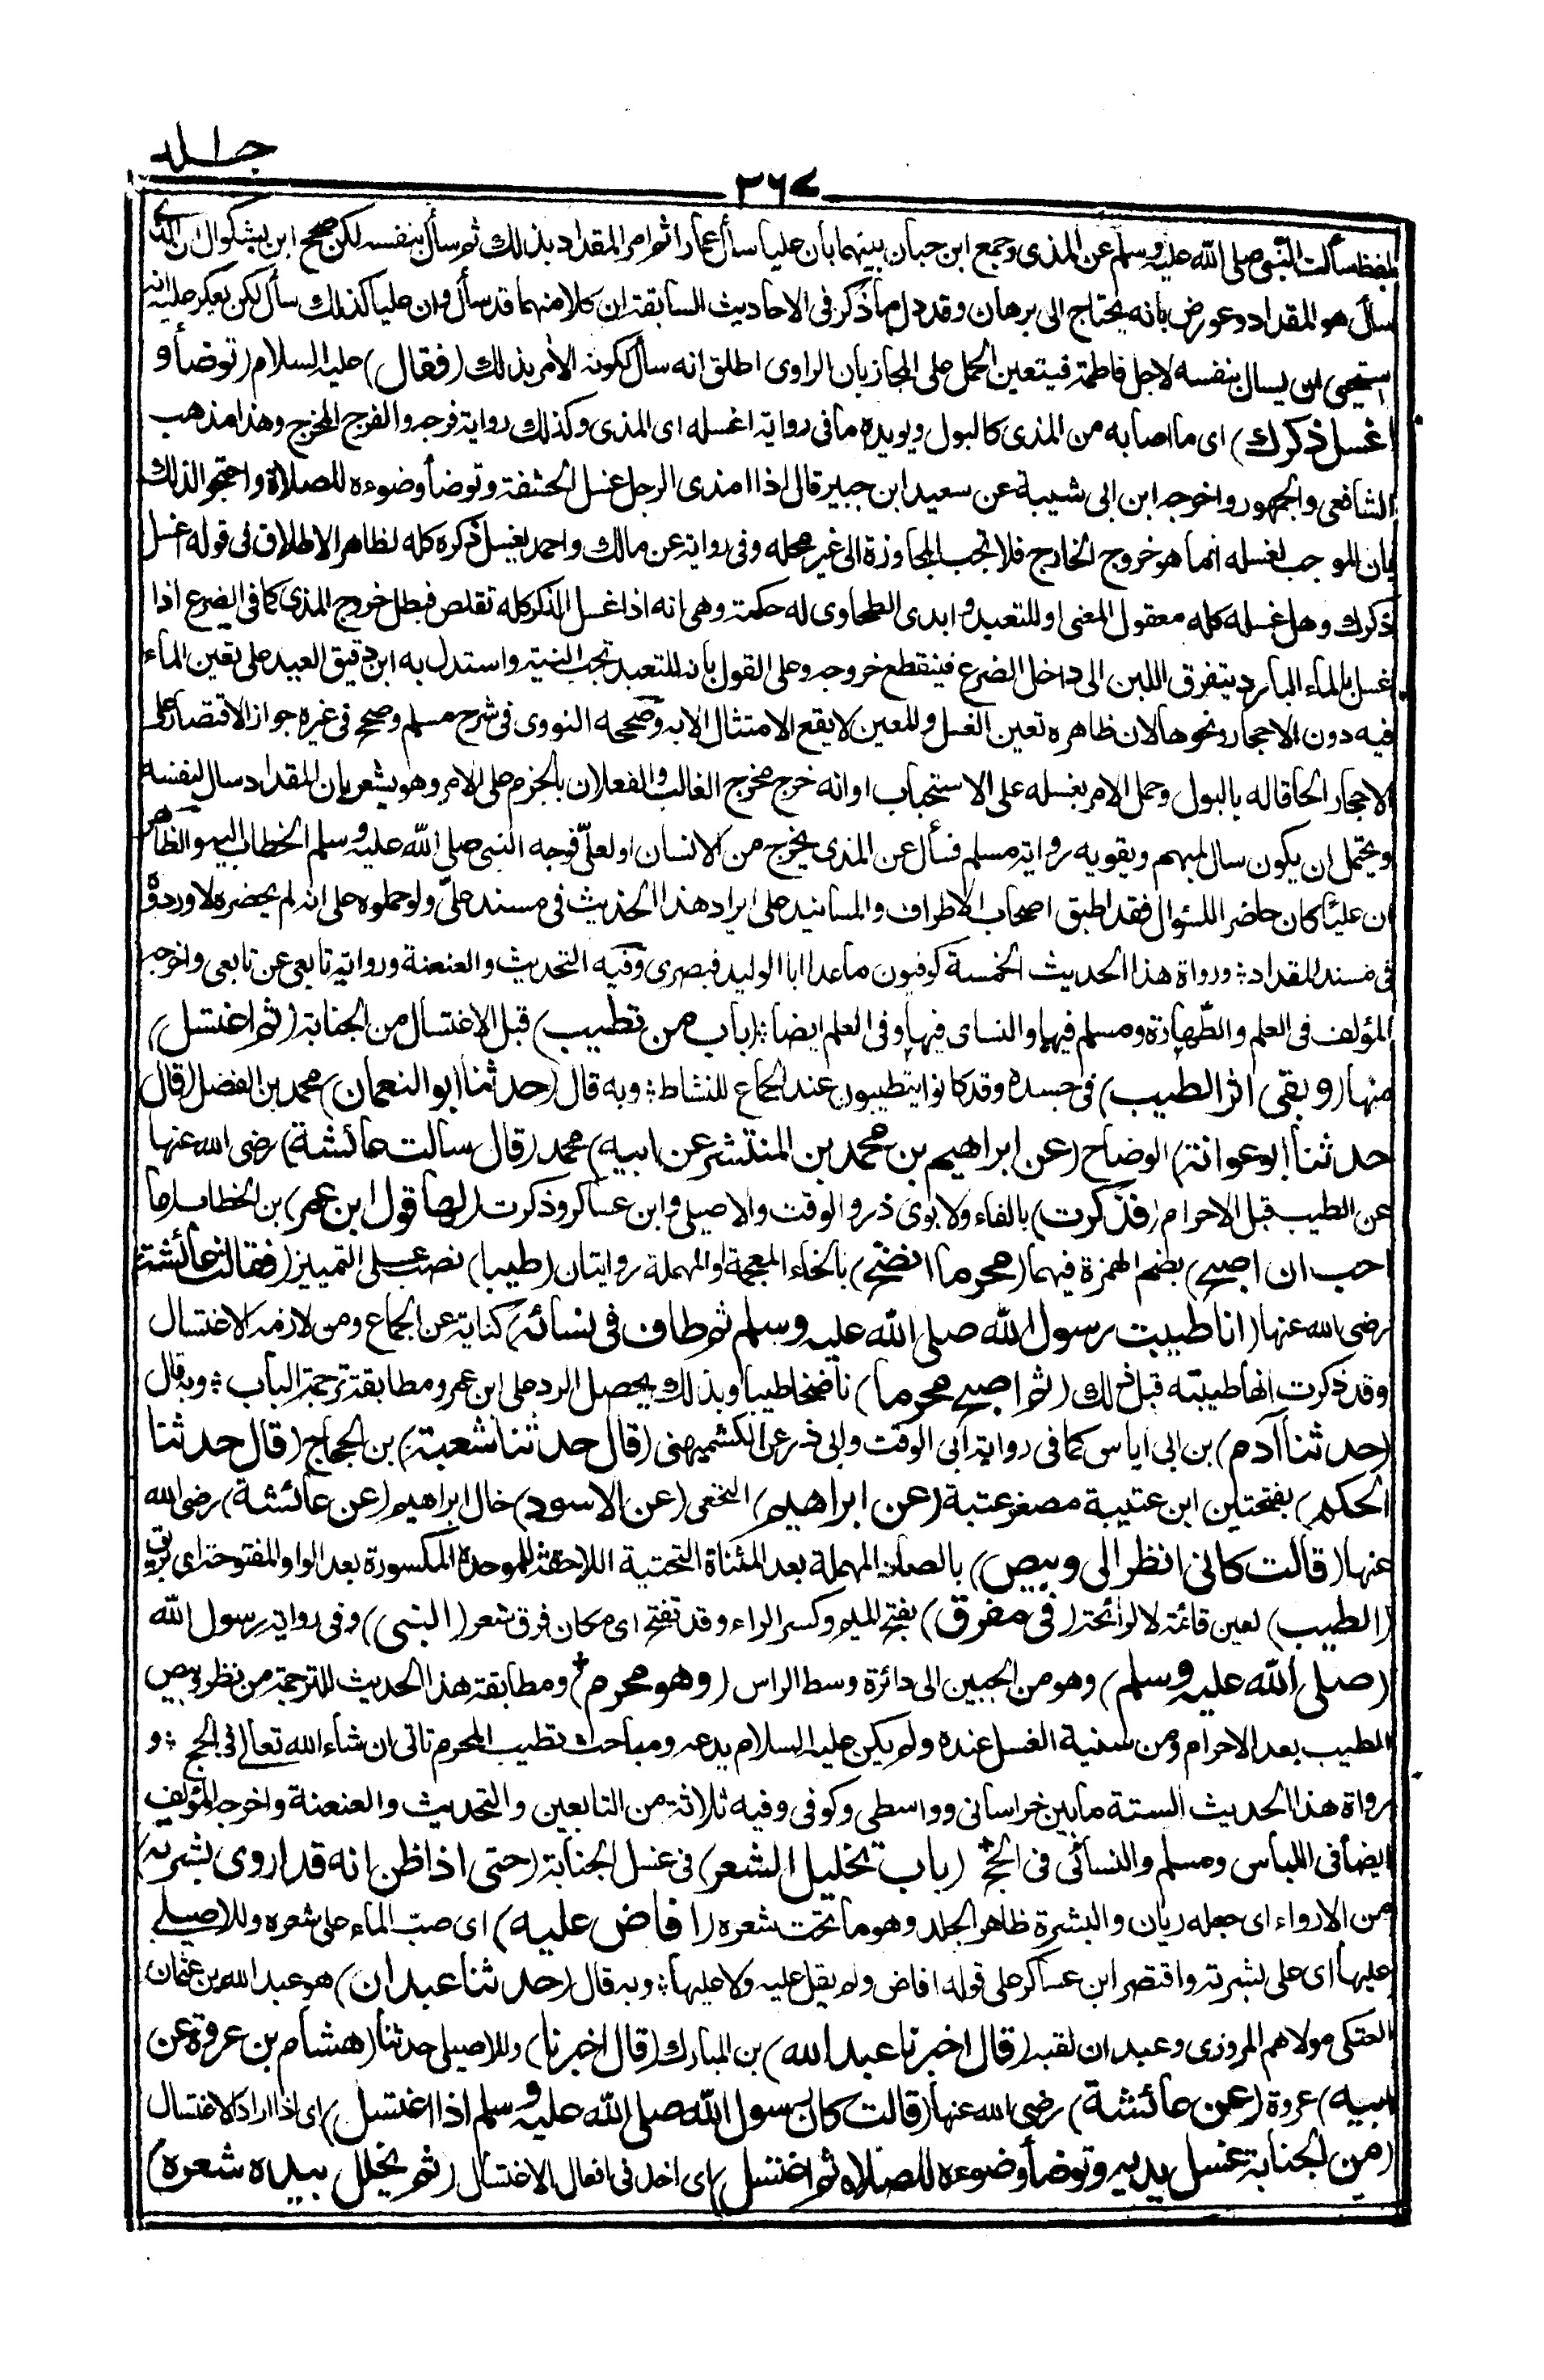 جلد
٣٦٧
بلفظ سألت النبي صلى الله عليه وسلم عن المذى وجمع ابن حبان بينهما بان عليا سأل عمارا ثم امر المقداد بذلك ثم سأل بنفسه لكن صحح ابن بشكوال ان الذى
سأل هو المقداد وعورض بانه يحتاج الى برهان وقد دل ما ذكر فى الاحاديث السابقة ان كلا منهما قد سأل وان عليا كذلك سأل لكن يعكر عليه انه
استحيى ان يسال بنفسه لاجل فاطمة فيتعين الحمل على المجاز بان الراوى اطلق انه سأل لكونه الامر بذلك (فقال) عليه السلام (توضأ و
اغسل ذكرك) اى ما اصابه من المذى كالبول ويويده ما فى رواية اغسله اى المذى وكذلك رواية فرجه والفرج المخرج وهذا مذهب
الشافعى والجمهور واخرجه ابن ابى شيبة عن سعيد ابن جبير قال اذا امذى الرجل غسل الحشفة وتوضأ وضوءه للصلاة واحتجوا لذلك
بان الموجب لغسله انما هو خروج الخارج فلا تجب المجاوزة الى غير محله وفى رواية عن مالك واحمد يغسل ذكره كله لظاهر الاطلاق فى قوله اغسل
ذكرك وهل غسله كله معقول المعنى او للتعبد وابدى الطحاوى له حكمة وهى انه اذا غسل الذكر كله تقلص فبطل خروج المذى كما فى الضرع اذا
غسل بالماء البارد يتفرق اللبن الى داخل الضرع فينقطع خروجه وعلى القول بانه للتعبد تجب النية واستدل به ابن دقيق العيد على تعين الماء
فيه دون الاحجار ونحوها لان ظاهره تعين الغسل والمعين لا يقع الامتثال الا به وصححه النووى فى شرح مسلم وصحح فى غيره جواز الاقتصار على
الاحجار الحاقا له بالبول وحمل الامر بغسله على الاستحباب او انه خرج مخرج الغالب والفعلان بالجزم على الامر وهو يشعر بان المقداد سال لنفسه
ويحتمل ان يكون سال لمبهم ويقويه رواية مسلم فسأل عن المذى يخرج من الانسان او لعلى فوجه النبى صلى الله عليه وسلم الخطاب اليه والظاهر
ان عليا كان حاضر السؤال فقد اطبق اصحاب الاطراف والمسانيد على ايراد هذا الحديث فى مسند على ولو حملوه على انه لم يحضره لاوردوه
فى مسند المقداد ورواة هذا الحديث الخمسة كوفيون ما عدا ابا الوليد فبصرى وفيه التحديث والعنعنة ورواية تابعى عن تابعى واخرجه
المؤلف فى العلم والطهارة ومسلم فيها والنساى فيها وفى العلم ايضا (باب من تطيب) قبل الاغتسال من الجنابة (ثم اغتسل)
منها (وبقى اثر الطيب) فى جسده وقد كانوا يتطيبون عند الجماع للنشاط وبه قال (حدثنا ابو النعمان) محمد بن الفضل (قال
حدثنا ابو عوانة) الوضاح (عن ابراهيم بن محمد بن المنتشر عن ابيه) محمد (قال سالت عائشة) رضى الله عنها
عن الطيب قبل الاحرام (فذكرت) بالفاء ولابوى ذر والوقت والاصيلى وابن عساكر وذكرت (لها قول ابن عمر) بن الخطاب (ما
احب ان اصبح) بضم الهمزة فيهما (محرما انضخ) بالخاء المعجمة او المهملة روايتان (طيبا) نصب على التمييز (فقالت عائشة)
رضى الله عنها (انا طيبت رسول الله صلى الله عليه وسلم ثم طاف فى نسائه) كناية عن الجماع ومن لازمه الاغتسال
وقد ذكرت انها طيبته قبل ذلك (ثم اصبح محرما) ناضخا طيبا وبذلك يحصل الرد على ابن عمر ومطابقة ترجمة الباب وبه قال
(حدثنا آدم) بن ابى اياس كما فى رواية ابى الوقت وابى ذر عن الكشميهنى (قال حدثنا شعبة) بن الحجاج (قال حدثنا
الحكم) بفتحتين ابن عتيبة مصغر عتبة (عن ابراهيم) النخعى (عن الاسود) خال ابراهيم (عن عائشة) رضى الله
عنها (قالت كانى انظر الى وبيص) بالصاد المهملة بعد المثناة التحتية اللاحقة للموحدة المكسورة بعد الواو المفتوحة اى بريق
(الطيب) لعين قائمة لا لرائحة (فى مفرق) بفتح الميم وكسر الراء وقد تفتح اى مكان فرق شعر (النبى) وفى رواية رسول الله
(صلى الله عليه وسلم) وهو من الجبين الى دائرة وسط الراس (وهو محرم) ومطابقة هذا الحديث للترجمة من نظر وبيص
الطيب بعد الاحرام ومن سنية الغسل عنده ولم يكن عليه السلام يدعه ومباحث تطيب المحرم تاتى ان شاء الله تعالى فى الحج و
رواة هذا الحديث الستة ما بين خراسانى وواسطى وكوفى وفيه ثلاثة من التابعين والتحديث والعنعنة واخرجه المؤلف
ايضا فى اللباس ومسلم والنسائى فى الحج (باب تخليل الشعر) فى غسل الجنابة (حتى اذا ظن انه قد اروى بشرته)
من الارواء اى جعله ريان والبشرة ظاهر الجلد وهو ما تحت شعره (افاض عليه) اى صب الماء على شعره وللاصيلى
عليها اى على بشرته واقتصر ابن عساكر على قوله افاض ولم يقل عليه ولا عليها وبه قال (حدثنا عبدان) هو عبد الله بن عثمان
العتكى مولاهم المروزى وعبدان لقبه (قال اخبرنا عبد الله) بن المبارك (قال اخبرنا) وللاصيلى حدثنا (هشام بن عروة عن
ابيه) عروة (عن عائشة) رضى الله عنها (قالت كان رسول الله صلى الله عليه وسلم اذا اغتسل) اى اذا اراد الاغتسال
(من الجنابة غسل يديه وتوضأ وضوءه للصلاة ثم اغتسل) اى اخذ فى افعال الاغتسال (ثم يخلل بيده شعره)